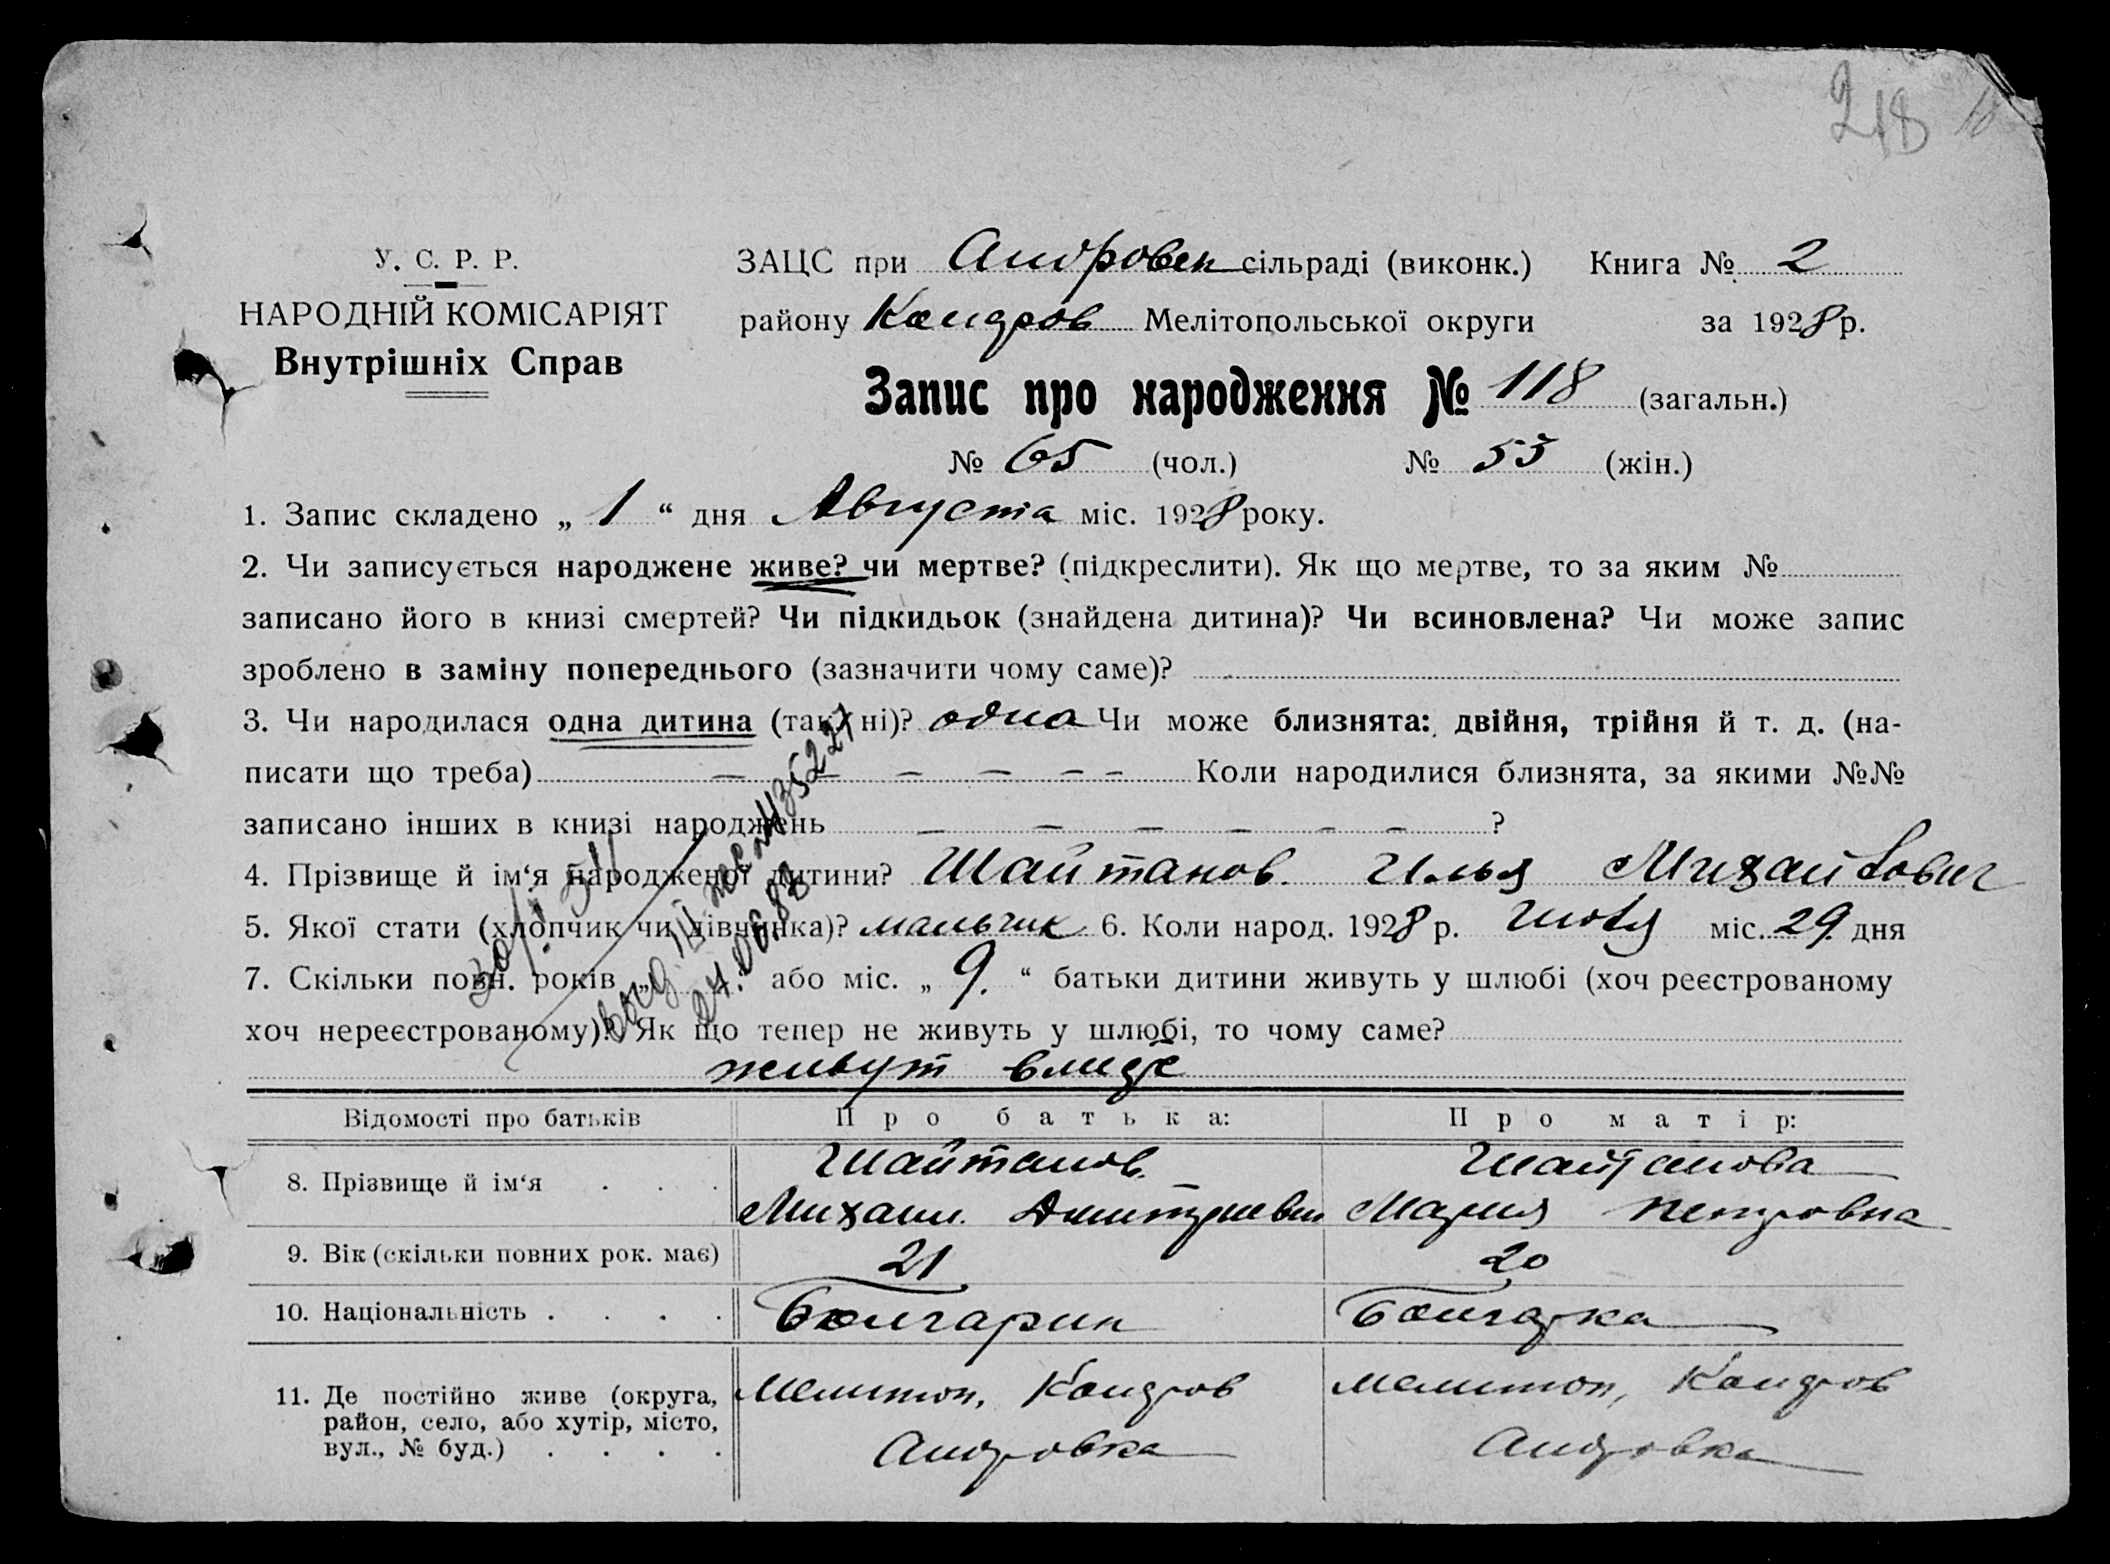 218
У. С. Р. Р.
НАРОДНІЙ КОМІСАРІЯТ
Внутрішніх Справ
ЗАЦС при Андровск сільраді (виконк.) Книга № 2
району Коларов Мелітопольської округи за 1928 р.
Запис про народження № 118 (загальн.)
№ 65 (чол.) № 53 (жін.)
1. Запис складено „ 1 “ дня Августа міс. 1928 року.
2. Чи записується народжене живе? чи мертве? (підкреслити). Як що мертве, то за яким №
записано його в книзі смертей? Чи підкидьок (знайдена дитина)? Чи всиновлена? Чи може запис
зроблено в заміну попереднього (зазначити чому саме)?
3. Чи народилася одна дитина (так, ні)? одна Чи може близнята: двійня, трійня й т. д. (на-
писати що треба) — — — — — — Коли народилися близнята, за якими №№
записано інших в книзі народжень — — — — — — ?
4. Прізвище й ім‘я народженої дитини? Шайтанов Илья Михайлович
5. Якої стати (хлопчик чи дівчинка)? мальчик 6. Коли народ. 1928 р. Июля міс. 29 дня
7. Скільки повн. років „ “ або міс. „ 9. “ батьки дитини живуть у шлюбі (хоч реєстрованому
хоч нереєстрованому)? Як що тепер не живуть у шлюбі, то чому саме?
живут
24.06.82
Відомості про батьків Про батька: Про матір:
8. Прізвище й ім‘я . . . Шайтанов Михаил Дмитриевич Шайтанова Мария Петровна
9. Вік (скільки повних рок. має) 21 20
10. Національність . . . . Болгарин Болгарка
11. Де постійно живе (округа, Мелитоп, Коларов Мелитоп, Коларов
район, село, або хутір, місто, Андровка Андровка
вул., № буд.) . . . .